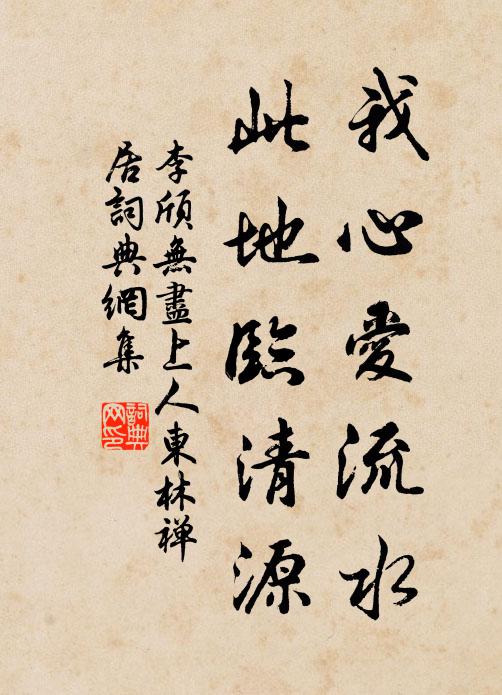 我心愛流水
此地臨清源
李頎無盡上人東林禅
居詞典網集
詞典网印